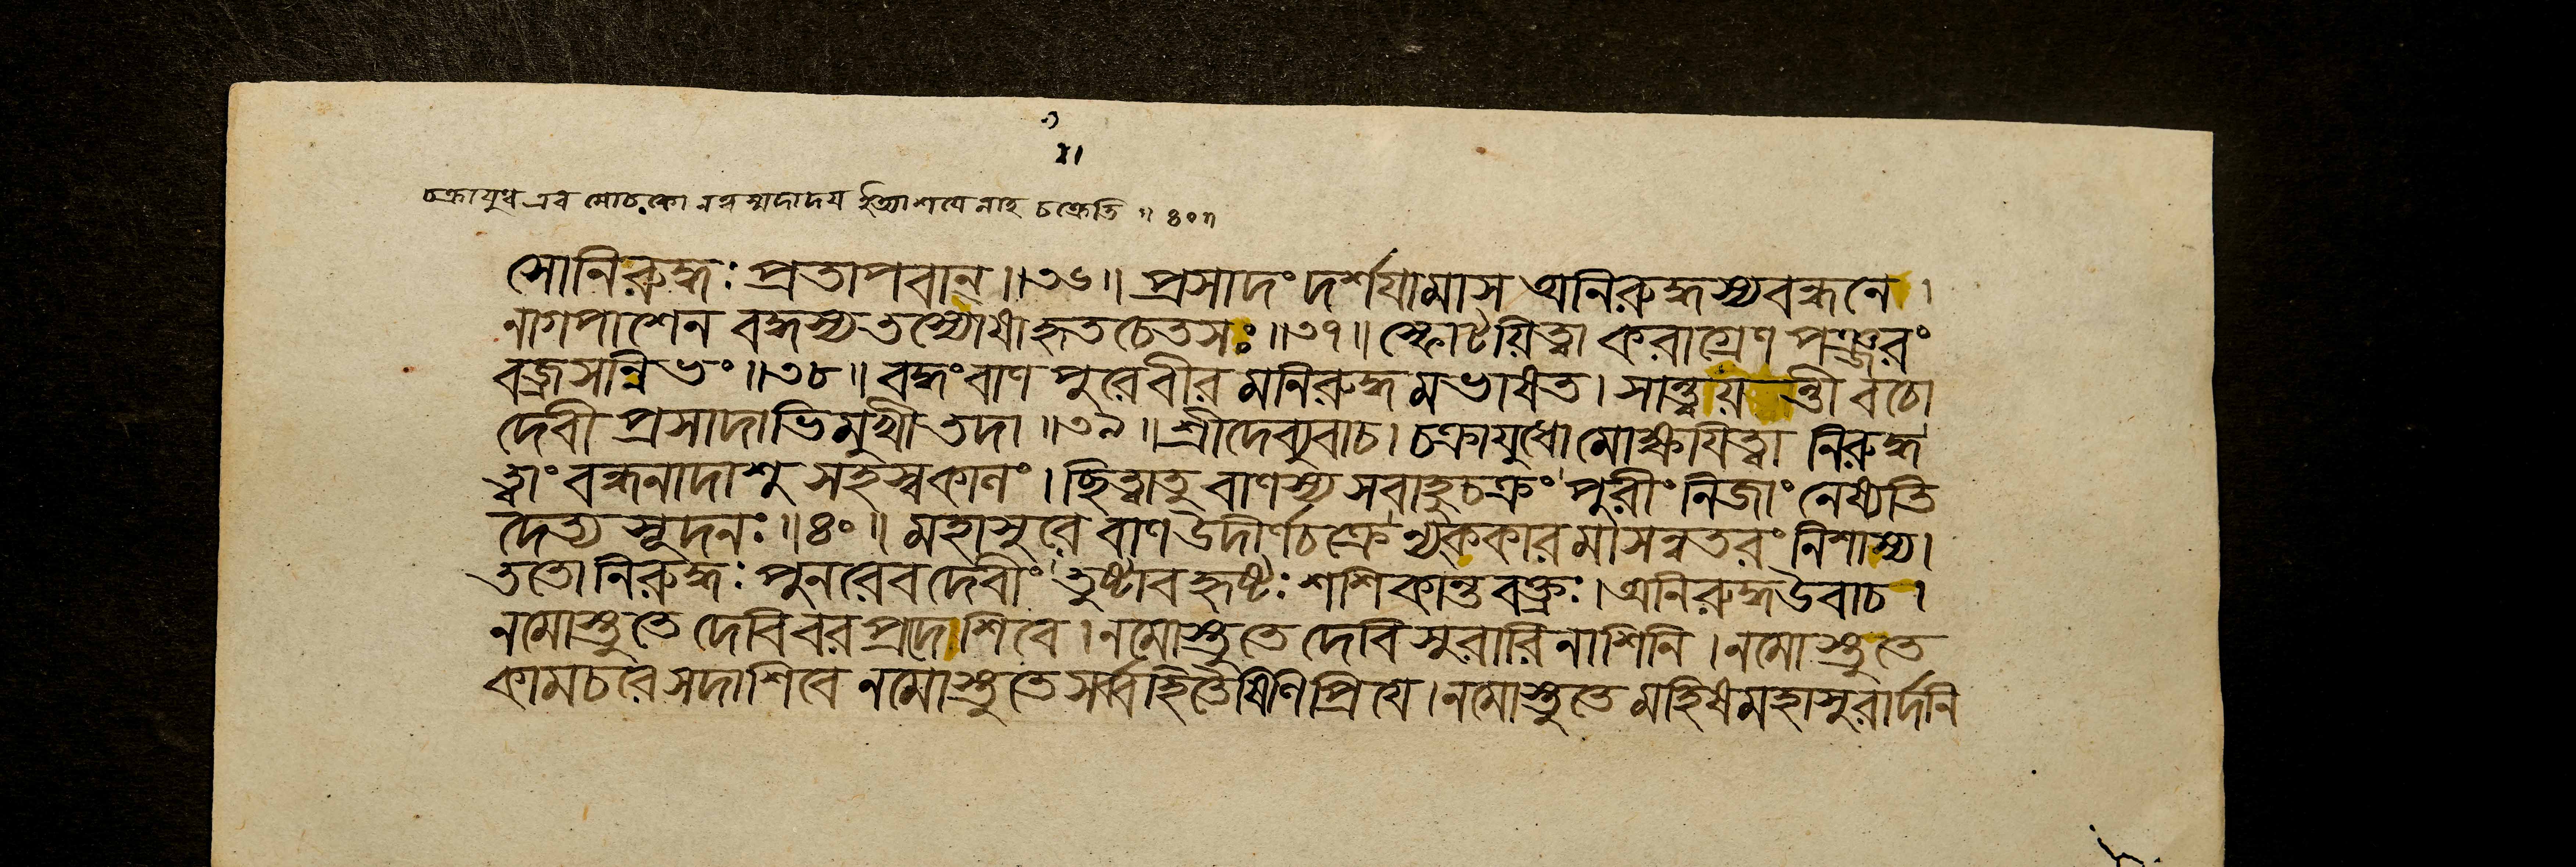 চক্রাযুধ এব মোচকো নত্বস্মদাদয ইত্যাশযেনাহ চক্রেতি ॥ ৪০॥
সোনিরুদ্ধঃ প্রতাপবান্ ॥৩৬॥ প্রসাদং দর্শযামাস অনিরুদ্ধস্যবন্ধনে ।
নাগপাশেন বদ্ধস্য তস্যোষাহৃতচেতসঃ ॥৩৭॥ স্ফোটয়িত্বা করাগ্রেণ পঞ্জরং
বজ্রসন্নিভং ॥৩৮॥ বদ্ধং বাণ পুরে বীর মনিরুদ্ধ মভাষত । সান্ত্বয়ন্তী বচো
দেবী প্রসাদাভিমুখী তদা ॥৩৯॥ শ্রীদেব্যুবাচ । চক্রাযুধো মোক্ষযিত্বা নিরুদ্ধ
ত্বাং বন্ধনাদাশু সহস্বকালং । ছিত্বাতু বাণস্য সবাহুচক্রং পুরীং নিজাং নেষ্যতি
দৈত্য সূদনঃ ॥৪০॥ মহাসুরে বাণ উদীর্ণচক্রে ন্যক্কার মাসন্নতরং নিশাম্য ।
ততো নিরুদ্ধঃ পুনরেব দেবীং তুষ্টাব হৃষ্টঃ শশিকান্তবক্ত্রঃ । অনিরুদ্ধ উবাচ ।
নমোস্তুতে দেবি বরপ্রদে শিবে । নমোস্তুতে দেবি সুরারিনাশিনি । নমোস্তুতে
কামচরে সদাশিবে নমোস্তুতে সর্ব্বহিতৈষিণিপ্রিযে । নমোস্তুতে মহিষমহাসুরার্দনি